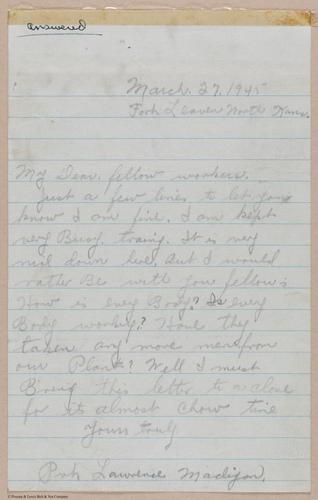 answered
March. 27, 1945
Fort Leavenworth Kans.
My Dear, fellow workers.
Just a few lines to let you
know I am fine. I am kept
very Busy, traing. It is very
nice down here. But I would
rather Be with you fellows
How is every Body? Is every
Body working? Have they
taken any more men from
our Plant? Well I must
Bring this letter to a close
for its almost chow time
Yours truly
Lawrence Madison.